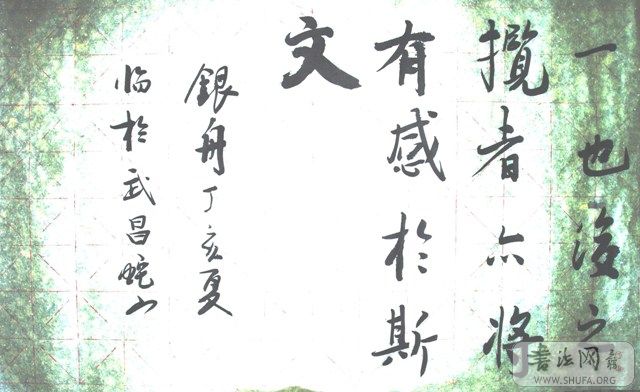 一也後之
攬者亦將
有感於斯
文
銀舟丁亥夏
临於武昌蛇山
書法网
WWW.SHUFA.ORG